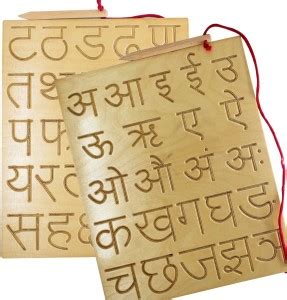 ट ठ ड ढ ण
त थ
प फ
य र
स ह
अ आ इ ई उ
ऊ ऋ ए ऐ
ओ औ अं अः
क ख ग घ ङ
च छ ज झ ञ